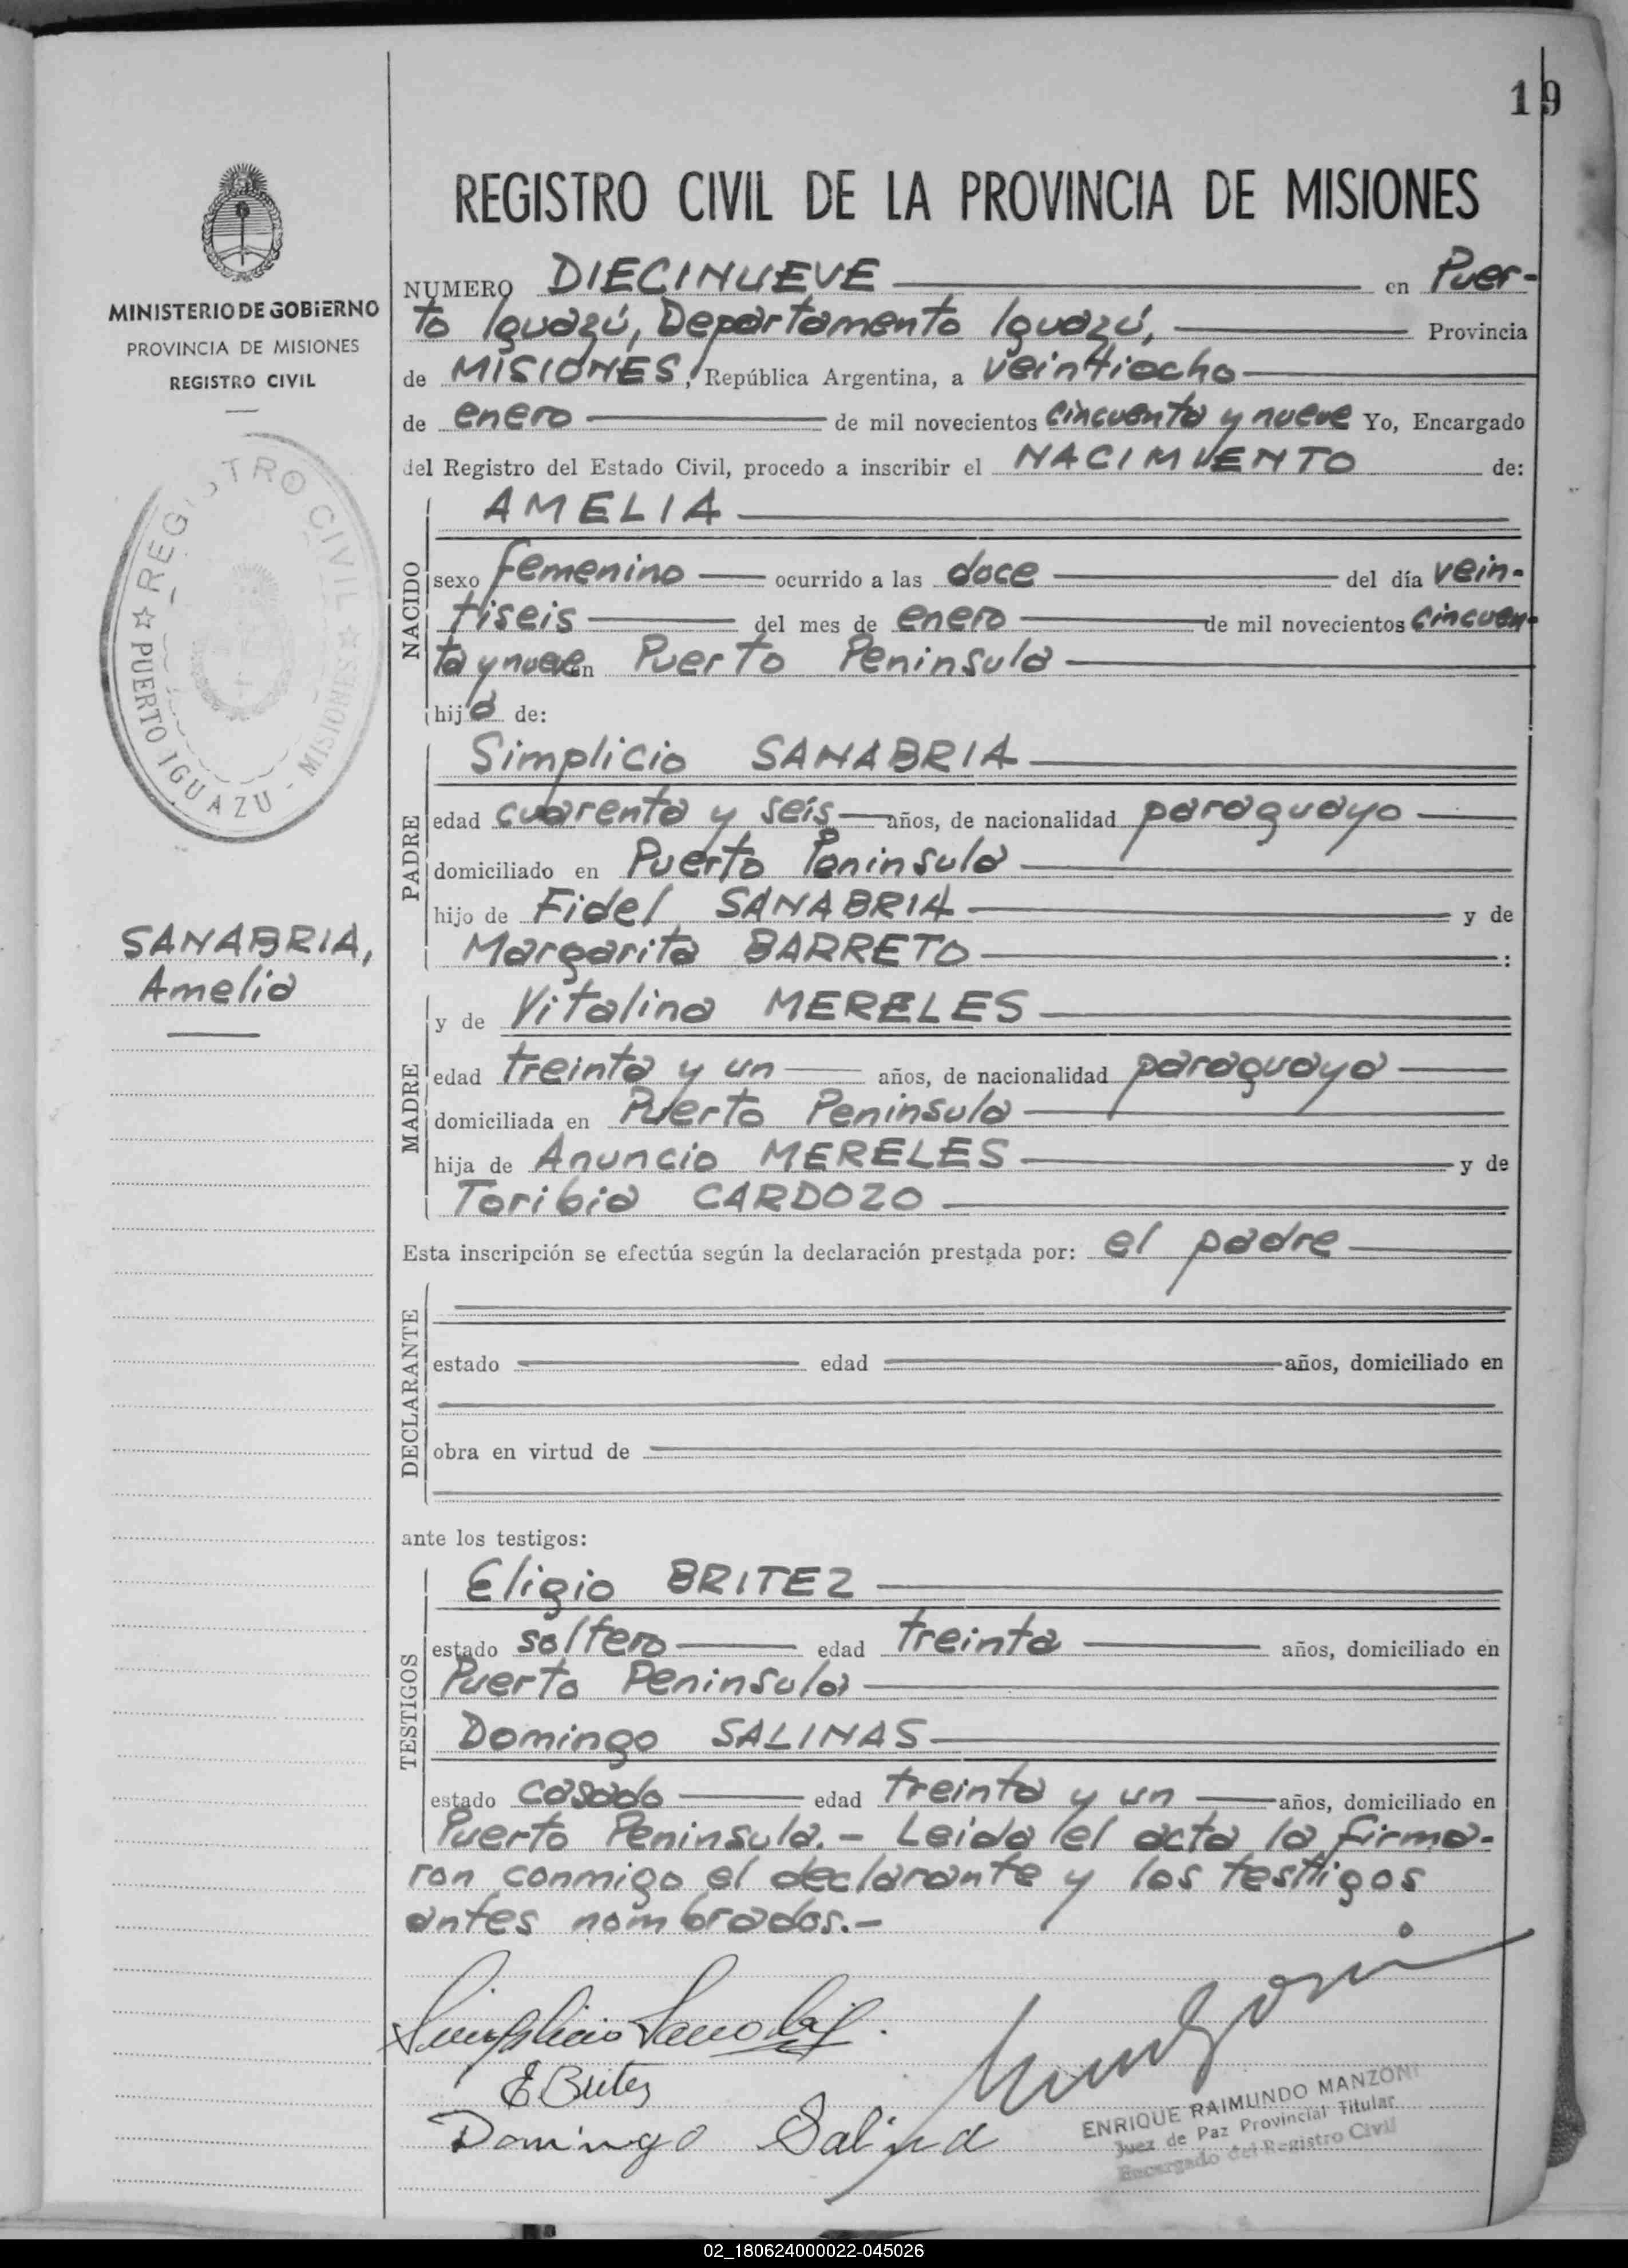 19
REGISTRO CIVIL DE LA PROVINCIA DE MISIONES
MINISTERIO DE GOBIERNO
PROVINCIA DE MISIONES
REGISTRO CIVIL
REGISTRO CIVIL
PUERTO IGUAZU - MISIONES
SANABRIA,
Amelia
NUMERO DIECINUEVE en Puer-
to Iguazú, Departamento Iguazú, Provincia
de MISIONES, República Argentina, a veintiocho
de enero de mil novecientos cincuenta y nueve Yo, Encargado
del Registro del Estado Civil, procedo a inscribir el NACIMIENTO de:
NACIDO
AMELIA
sexo femenino ocurrido a las doce del día vein-
tiseis del mes de enero de mil novecientos cincuen-
ta y nueve en Puerto Peninsula
hija de:
PADRE
Simplicio SANABRIA
edad cuarenta y seis años, de nacionalidad paraguayo
domiciliado en Puerto Peninsula
hijo de Fidel SANABRIA y de
Margarita BARRETO :
MADRE
y de Vitalina MERELES
edad treinta y un años, de nacionalidad paraguaya
domiciliada en Puerto Peninsula
hija de Anuncio MERELES y de
Toribia CARDOZO
Esta inscripción se efectúa según la declaración prestada por: el padre
DECLARANTE
estado edad años, domiciliado en
obra en virtud de
ante los testigos:
TESTIGOS
Eligio BRITEZ
estado soltero edad treinta años, domiciliado en
Puerto Peninsula
Domingo SALINAS
estado casado edad treinta y un años, domiciliado en
Puerto Peninsula.- Leida el acta la firma-
ron conmigo el declarante y los testigos
antes nombrados.-
Simplicio Sanabria
E Britez
Domingo Salina
ENRIQUE RAIMUNDO MANZONI
Juez de Paz Provincial Titular
Encargado del Registro Civil
02_180624000022-045026